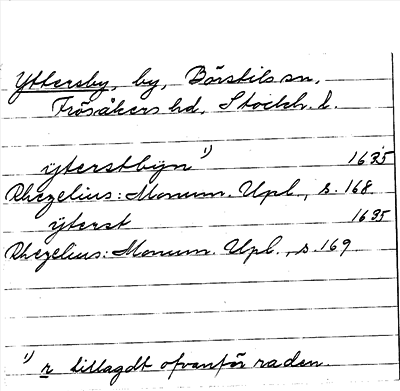 Yttersby, by, Börstils sn,
Frösåkers hd, Stockh. l.
ÿterstbÿn 1) 1635
Rhezelius: Monum. Upl., s. 168
ÿterst 1635
Rhezelius: Monum. Upl., s. 169
1) r tillagdt ofvanför raden.